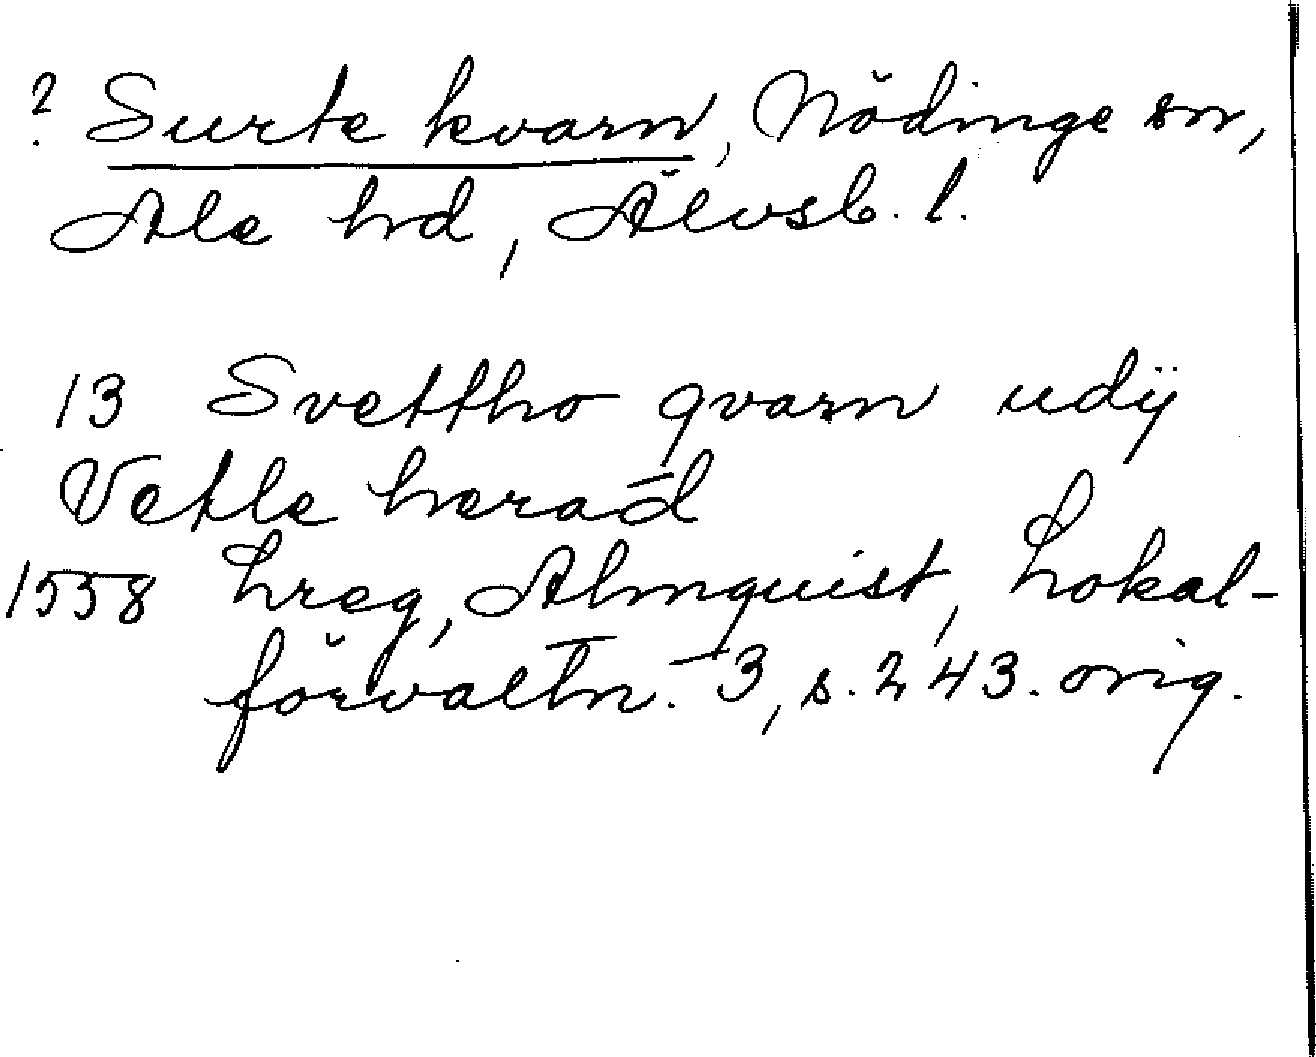 ? Surte kvarn, Nödinge sn,
Ale hd, Älvsb. l.
13 Svettho qvarn udij
Vetle herad
1558 hreg, Almquist, Lokal-
förvaltn. 3, s. 243. orig.